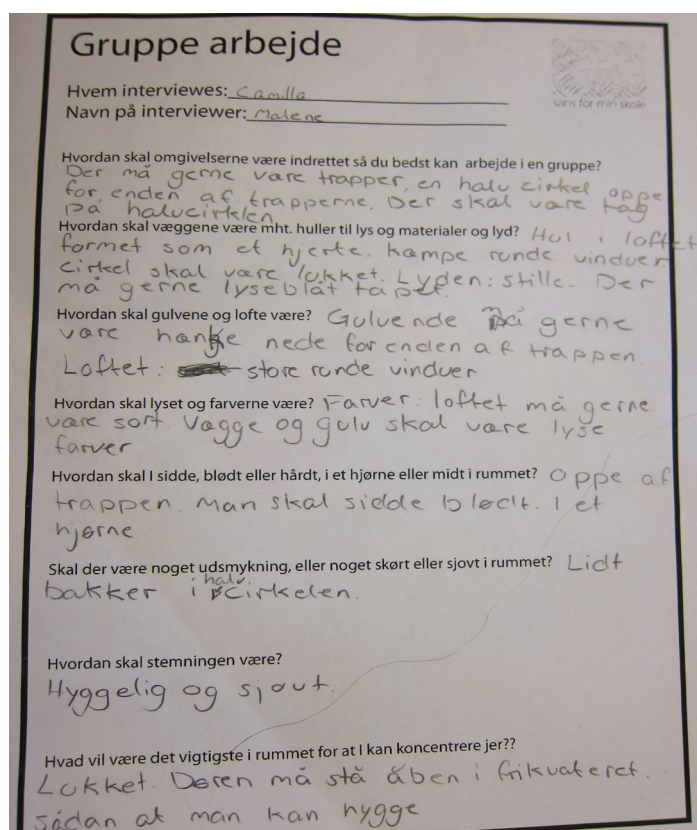 Gruppe arbejde
Hvem interviewes: Camilla
Navn på interviewer: Malene
sans for min skole
Hvordan skal omgivelserne være indrettet så du bedst kan arbejde i en gruppe?
Der må gerne være trapper, en halv cirkel oppe
for enden af trapperne. Der skal være tag
på halvcirklen
Hvordan skal væggene være mht. huller til lys og materialer og lyd? Hul i loftet
formet som et hjerte. kæmpe runde vinduer.
cirkel skal være lukket. Lyden: stille. Der
må gerne lyseblåt tapet.
Hvordan skal gulvene og lofte være? Gulvende må gerne
være hænge nede for enden af trappen.
Loftet: store runde vinduer
Hvordan skal lyset og farverne være? Farver: loftet må gerne
være sort. Vægge og gulv skal være lyse
farver
Hvordan skal I sidde, blødt eller hårdt, i et hjørne eller midt i rummet? Oppe af
trappen. Man skal sidde blødt. I et
hjørne
Skal der være noget udsmykning, eller noget skørt eller sjovt i rummet? Lidt
bakker i halv cirkelen.
Hvordan skal stemningen være?
Hyggelig og sjovt.
Hvad vil være det vigtigste i rummet for at I kan koncentrere jer??
Lukket. Døren må stå åben i frikvateret.
sådan at man kan hygge